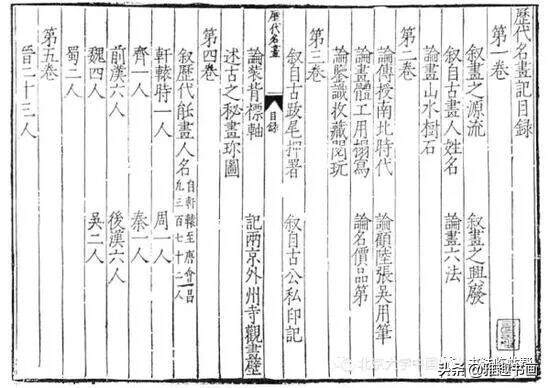 歷代名畫記目録
第一卷
叙畫之源流
叙畫之興廢
叙自古畫人姓名
論畫六法
論畫山水樹石
第二卷
論傳授南北時代
論顧陸張吳用筆
論畫體工用搨寫
論名價品第
論鑒識收藏閱玩
第三卷
叙自古跋尾押署
叙自古公私印記
論裝背褾軸
記兩京外州寺觀畫壁
述古之秘畫珍圖
第四卷
叙歷代能畫人名
自軒轅至唐會昌
凡三百七十二人
軒轅時一人
周一人
齊一人
秦一人
前漢六人
後漢六人
魏四人
吳二人
蜀二人
第五卷
晉二十三人
歷代名畫
目録
头条 @雅趣书画